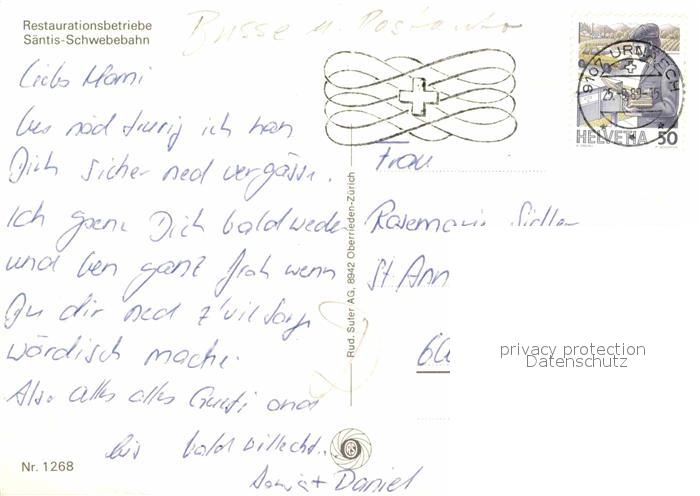 Restaurationsbetriebe
Säntis-Schwebebahn
Busse u. Postauto
Liebs Mami
bes nöd trurig ich han
Dich sicher ned vergässe.
Ich gsehne Dich bald weder
und ben ganz froh wenn
Du dir ned z'vil Sorge
wördisch mache.
Also alles alles Gueti ond
bis bald
Daniel
Nr. 1268
Rud. Suter AG, 8942 Oberrieden-Zürich
9107 URNÄSCH
HELVETIA 50
Frau
Rosemarie
St Ann
privacy protection
Datenschutz